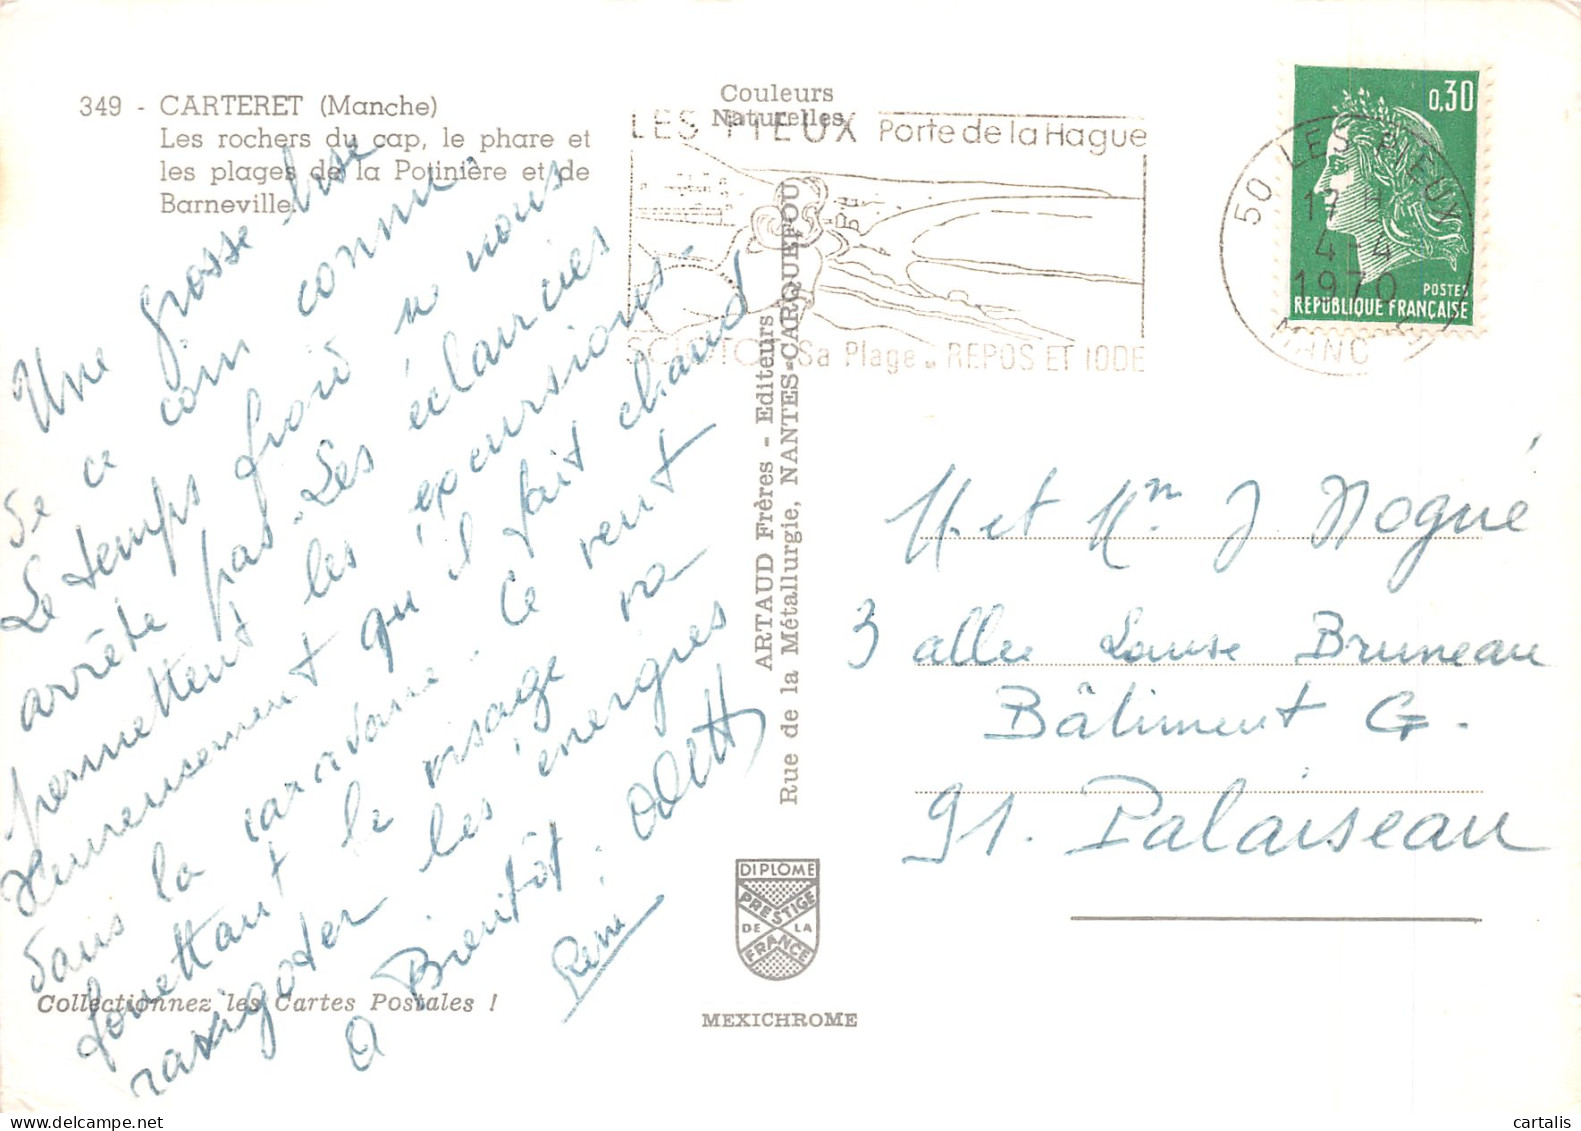 349 - CARTERET (Manche)
Les rochers du cap, le phare et
les plages de la Potinière et de
Barneville.
Couleurs
Naturelles
LES PIEUX Porte de la Hague
SCIOTOT Sa Plage - REPOS ET IODE
50 LES PIEUX
17 H
4-4
1970
MANCHE
0,30
POSTES
REPUBLIQUE FRANÇAISE
Une grosse bise
de ce coin connu.
Le temps froid n' nous
arrête pas. Les éclaircies
permettent les excursions.
Heureusement qu'il fait chaud
dans la caravane. Ce vent
fouettant le visage va
ravigoter les énergies
A Bientôt. Odette
René
ARTAUD Frères - Editeurs
Rue de la Métallurgie, NANTES-CARQUEFOU
M. et Mme J Nogué
3 allée Louise Bruneau
Bâtiment G.
91. Palaiseau
DIPLOME
PRESTIGE
DE LA
FRANCE
Collectionnez les Cartes Postales !
MEXICHROME
cartalis